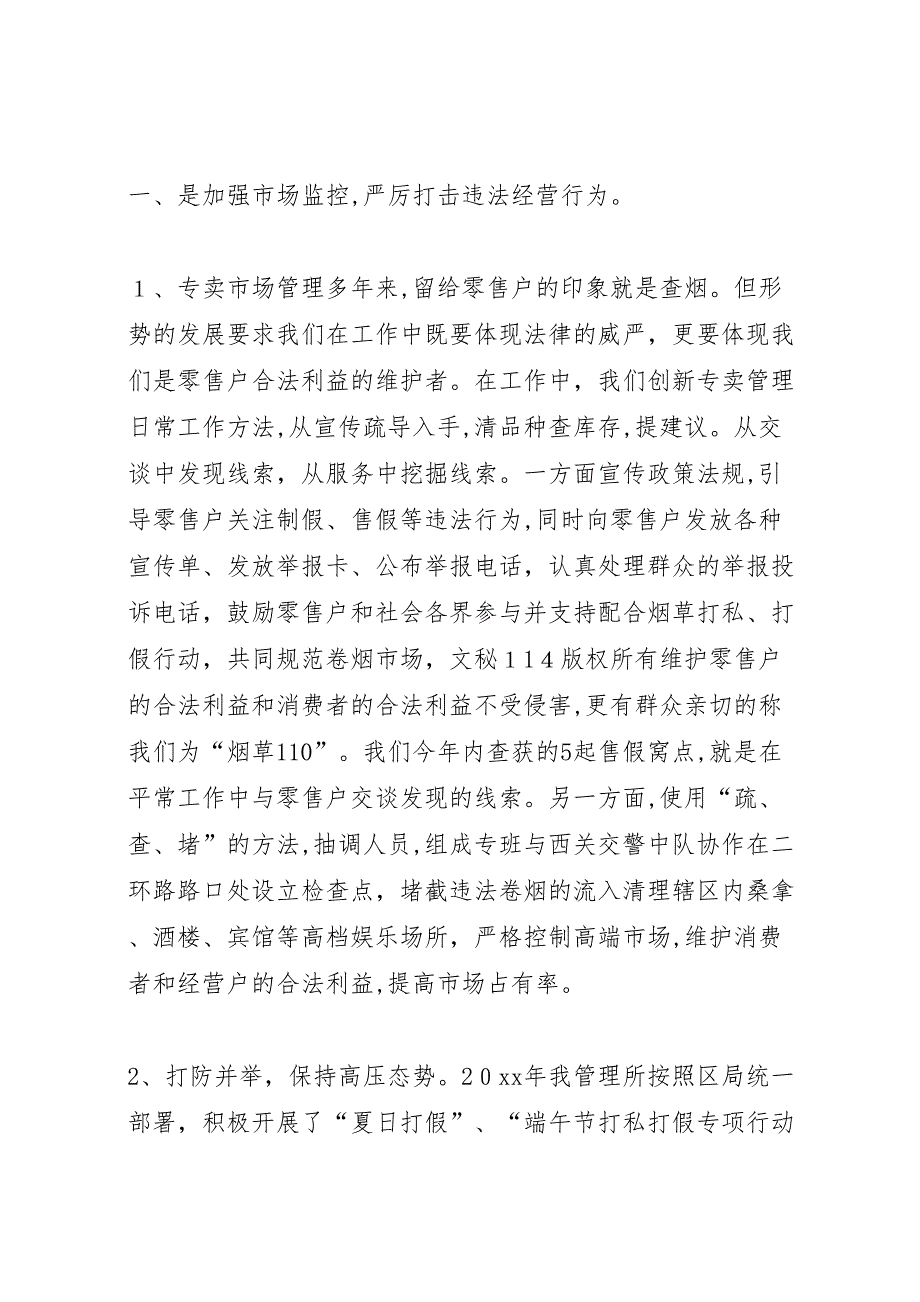 一、是加强市场监控,严厉打击违法经营行为。
１、专卖市场管理多年来,留给零售户的印象就是查烟。但形
势的发展要求我们在工作中既要体现法律的威严，更要体现我
们是零售户合法利益的维护者。在工作中，我们创新专卖管理
日常工作方法,从宣传疏导入手,清品种查库存,提建议。从交
谈中发现线索，从服务中挖掘线索。一方面宣传政策法规,引
导零售户关注制假、售假等违法行为,同时向零售户发放各种
宣传单、发放举报卡、公布举报电话，认真处理群众的举报投
诉电话，鼓励零售户和社会各界参与并支持配合烟草打私、打
假行动，共同规范卷烟市场，文秘１１４版权所有维护零售户
的合法利益和消费者的合法利益不受侵害,更有群众亲切的称
我们为“烟草110”。我们今年内查获的5起售假窝点,就是在
平常工作中与零售户交谈发现的线索。另一方面,使用“疏、
查、堵”的方法,抽调人员,组成专班与西关交警中队协作在二
环路路口处设立检查点，堵截违法卷烟的流入清理辖区内桑拿
、酒楼、宾馆等高档娱乐场所，严格控制高端市场,维护消费
者和经营户的合法利益,提高市场占有率。
2、打防并举，保持高压态势。２０xx年我管理所按照区局统一
部署，积极开展了“夏日打假”、“端午节打私打假专项行动